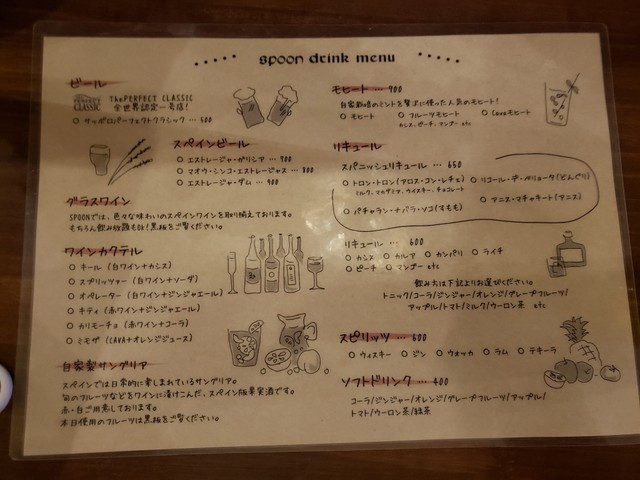 spoon drink menu
ビール
ThePERFECT CLASSIC
全世界認定一号店!
サッポロパーフェクトクラシック … 600
スペインビール
エストレージャ・ガリシア … 900
マオウ・シンコ・エストレージャス … 800
エストレージャ・ダム … 900
グラスワイン
SPOONでは、色々な味わいのスペインワインを取り揃えております。
もちろん飲み放題もOK!黒板をご覧ください。
ワインカクテル
キール (白ワイン+カシス)
スプリッツァー (白ワイン+ソーダ)
オペレーター (白ワイン+ジンジャエール)
キティ (赤ワイン+ジンジャエール)
カリモーチョ (赤ワイン+コーラ)
ミモザ (CAVA+オレンジジュース)
自家製サングリア
スペインでは日常的に楽しまれているサングリア。
旬のフルーツなどをワインに漬けこんだ、スペイン版果実酒です。
赤・白ご用意しております。
本日使用のフルーツは黒板をご覧ください。
モヒート … 900
自家栽培のミントを贅沢に使った人気のモヒート!
モヒート フルーツモヒート Cavaモヒート
カシス、ピーチ、マンゴー etc
リキュール
スパニッシュリキュール … 650
トロン・トロン(アロス・コン・レチェ) リコール・デ・ベリョータ(どんぐり)
ミルク、マカダミア、ウイスキー、チョコレート
パチャラン・ナバラ・ソコ(すもも) アニス・マチャキート(アニス)
リキュール … 600
カシス カルア カンパリ ライチ
ピーチ マンゴー etc
飲み方は下記よりお選びください。
トニック/コーラ/ジンジャー/オレンジ/グレープフルーツ/
アップル/トマト/ミルク/ウーロン茶 etc
スピリッツ … 600
ウィスキー ジン ウォッカ ラム テキーラ
ソフトドリンク … 400
コーラ/ジンジャー/オレンジ/グレープフルーツ/アップル/
トマト/ウーロン茶/緑茶